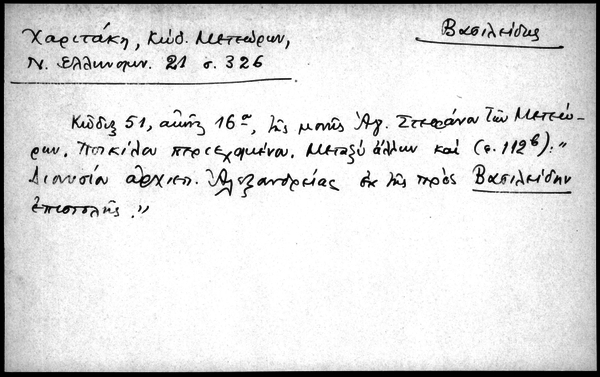 Βασιλείδης
Χαριτάκη, Κώδ. Μετεώρων,
Ν. Ελληνομν. 21 σ. 326
Κώδιξ 51, αἰών 16ος, τῆς μονῆς Ἁγ. Στεφάνου τῶν Μετεώ-
ρων. Ποικίλα περιεχόμενα. Μεταξὺ ἄλλων καὶ (σ. 112β): "
Διονυσίου ἀρχιεπ. Ἀλεξανδρείας ἐκ τῆς πρὸς Βασιλείδην
ἐπιστολῆς."